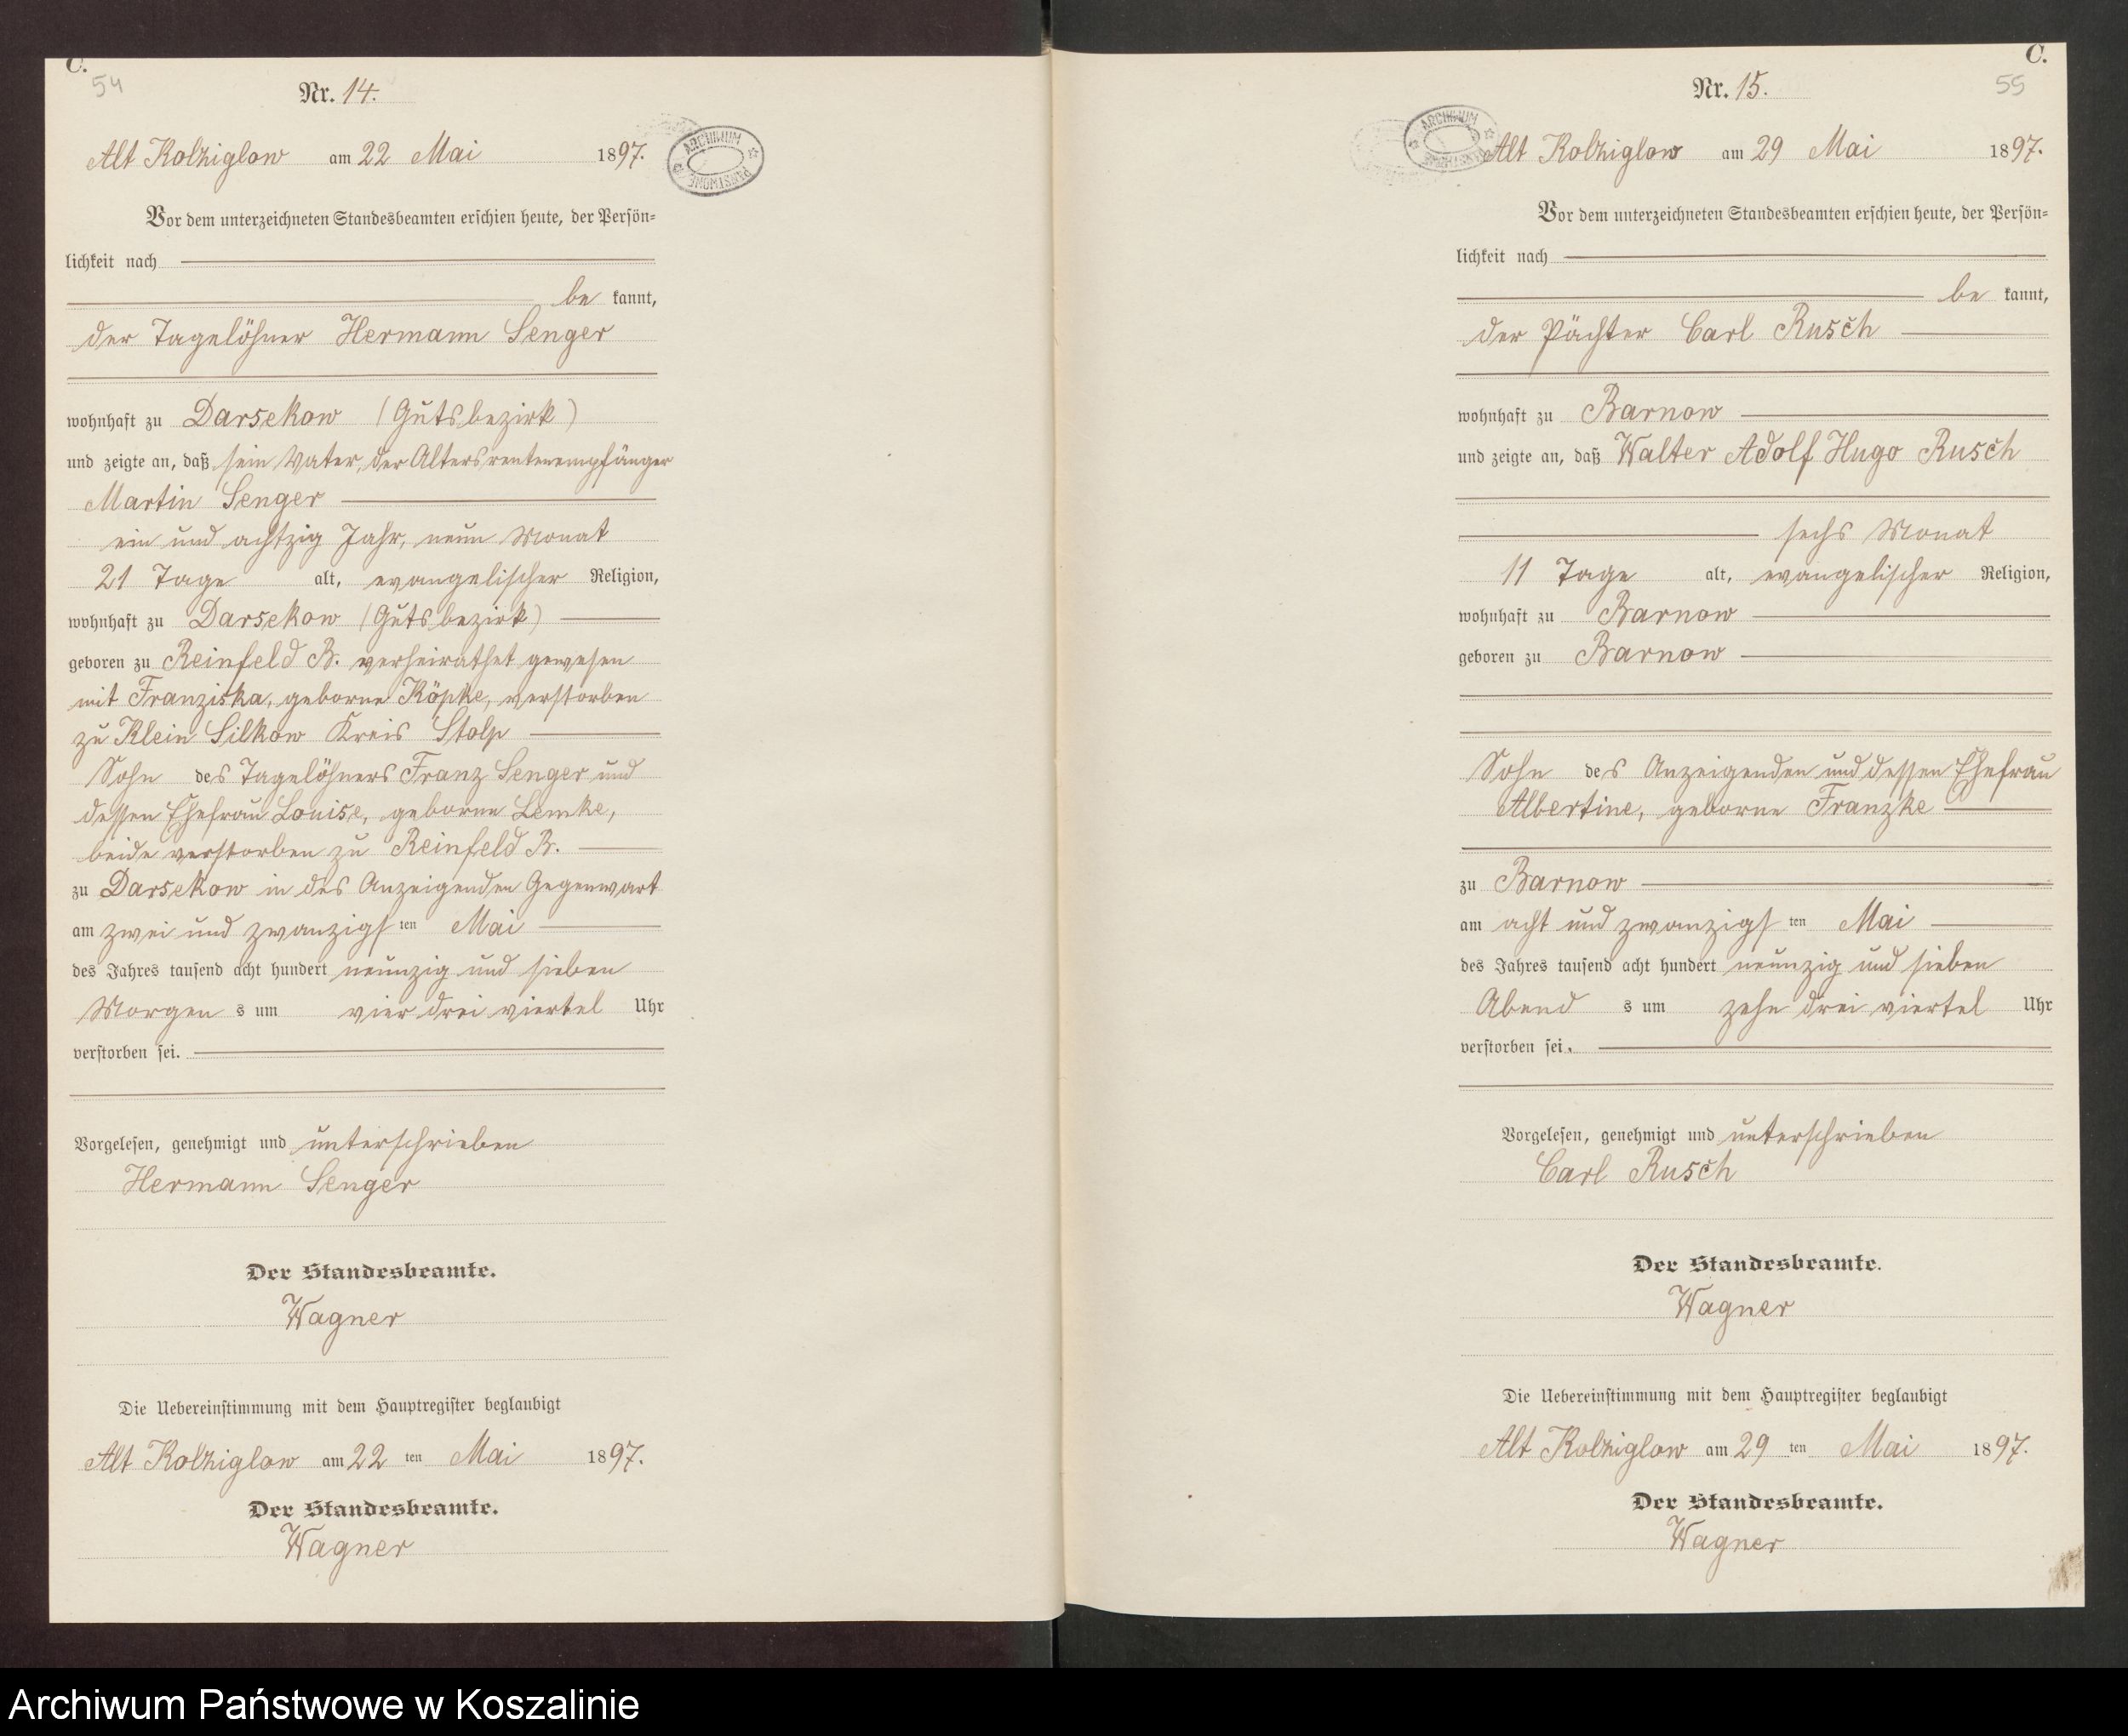 C.
54
Nr. 14.
Alt Kolziglow am 22 Mai 1897.
ARCHIWUM PAŃSTWOWE
Vor dem unterzeichneten Standesbeamten erschien heute, der Persön=
lichkeit nach
be kannt,
der Tagelöhner Hermann Senger
wohnhaft zu Darsekow (Gutsbezirk)
und zeigte an, daß sein Vater, der Altersrentenempfänger
Martin Senger
ein und achtzig Jahr, neun Monat
21 Tage alt, evangelischer Religion,
wohnhaft zu Darsekow (Gutsbezirk)
geboren zu Reinfeld B. verheirathet gewesen
mit Franziska, geborne Köpke, verstorben
zu Klein Silkow Kreis Stolp
Sohn des Tagelöhners Franz Senger und
dessen Ehefrau Louise, geborne Lemke,
beide verstorben zu Reinfeld B.
zu Darsekow in des Anzeigenden Gegenwart
am zwei und zwanzigsten Mai
des Jahres tausend acht hundert neunzig und sieben
Morgen s um vier drei viertel Uhr
verstorben sei.
Vorgelesen, genehmigt und unterschrieben
Hermann Senger
Der Standesbeamte.
Wagner
Die Uebereinstimmung mit dem Hauptregister beglaubigt
Alt Kolziglow am 22 ten Mai 1897.
Der Standesbeamte.
Wagner
C.
55
Nr. 15.
ARCHIWUM PAŃSTWOWE
Alt Kolziglow am 29 Mai 1897.
Vor dem unterzeichneten Standesbeamten erschien heute, der Persön=
lichkeit nach
be kannt,
der Pächter Carl Rusch
wohnhaft zu Barnow
und zeigte an, daß Walter Adolf Hugo Rusch
sechs Monat
11 Tage alt, evangelischer Religion,
wohnhaft zu Barnow
geboren zu Barnow
Sohn des Anzeigenden und dessen Ehefrau
Albertine, geborne Franzke
zu Barnow
am acht und zwanzigsten Mai
des Jahres tausend acht hundert neunzig und sieben
Abend s um zehn drei viertel Uhr
verstorben sei.
Vorgelesen, genehmigt und unterschrieben
Carl Rusch
Der Standesbeamte.
Wagner
Die Uebereinstimmung mit dem Hauptregister beglaubigt
Alt Kolziglow am 29 ten Mai 1897.
Der Standesbeamte.
Wagner
Archiwum Państwowe w Koszalinie